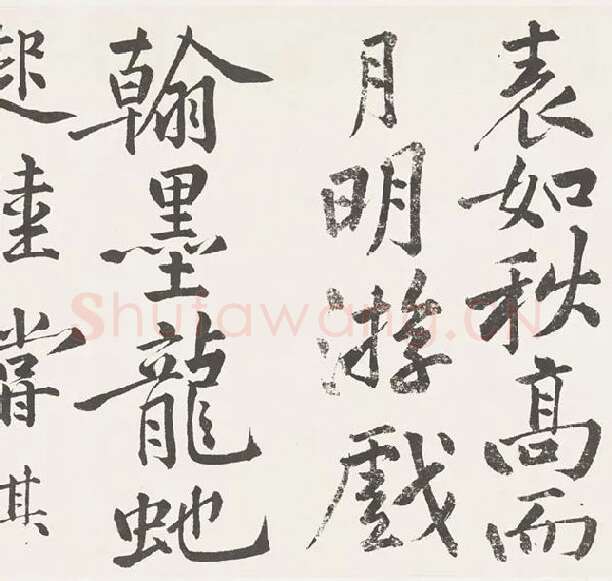 表如秋高而
月明游戲
翰墨龍虵
起陸嘗其
Shufawang.CN